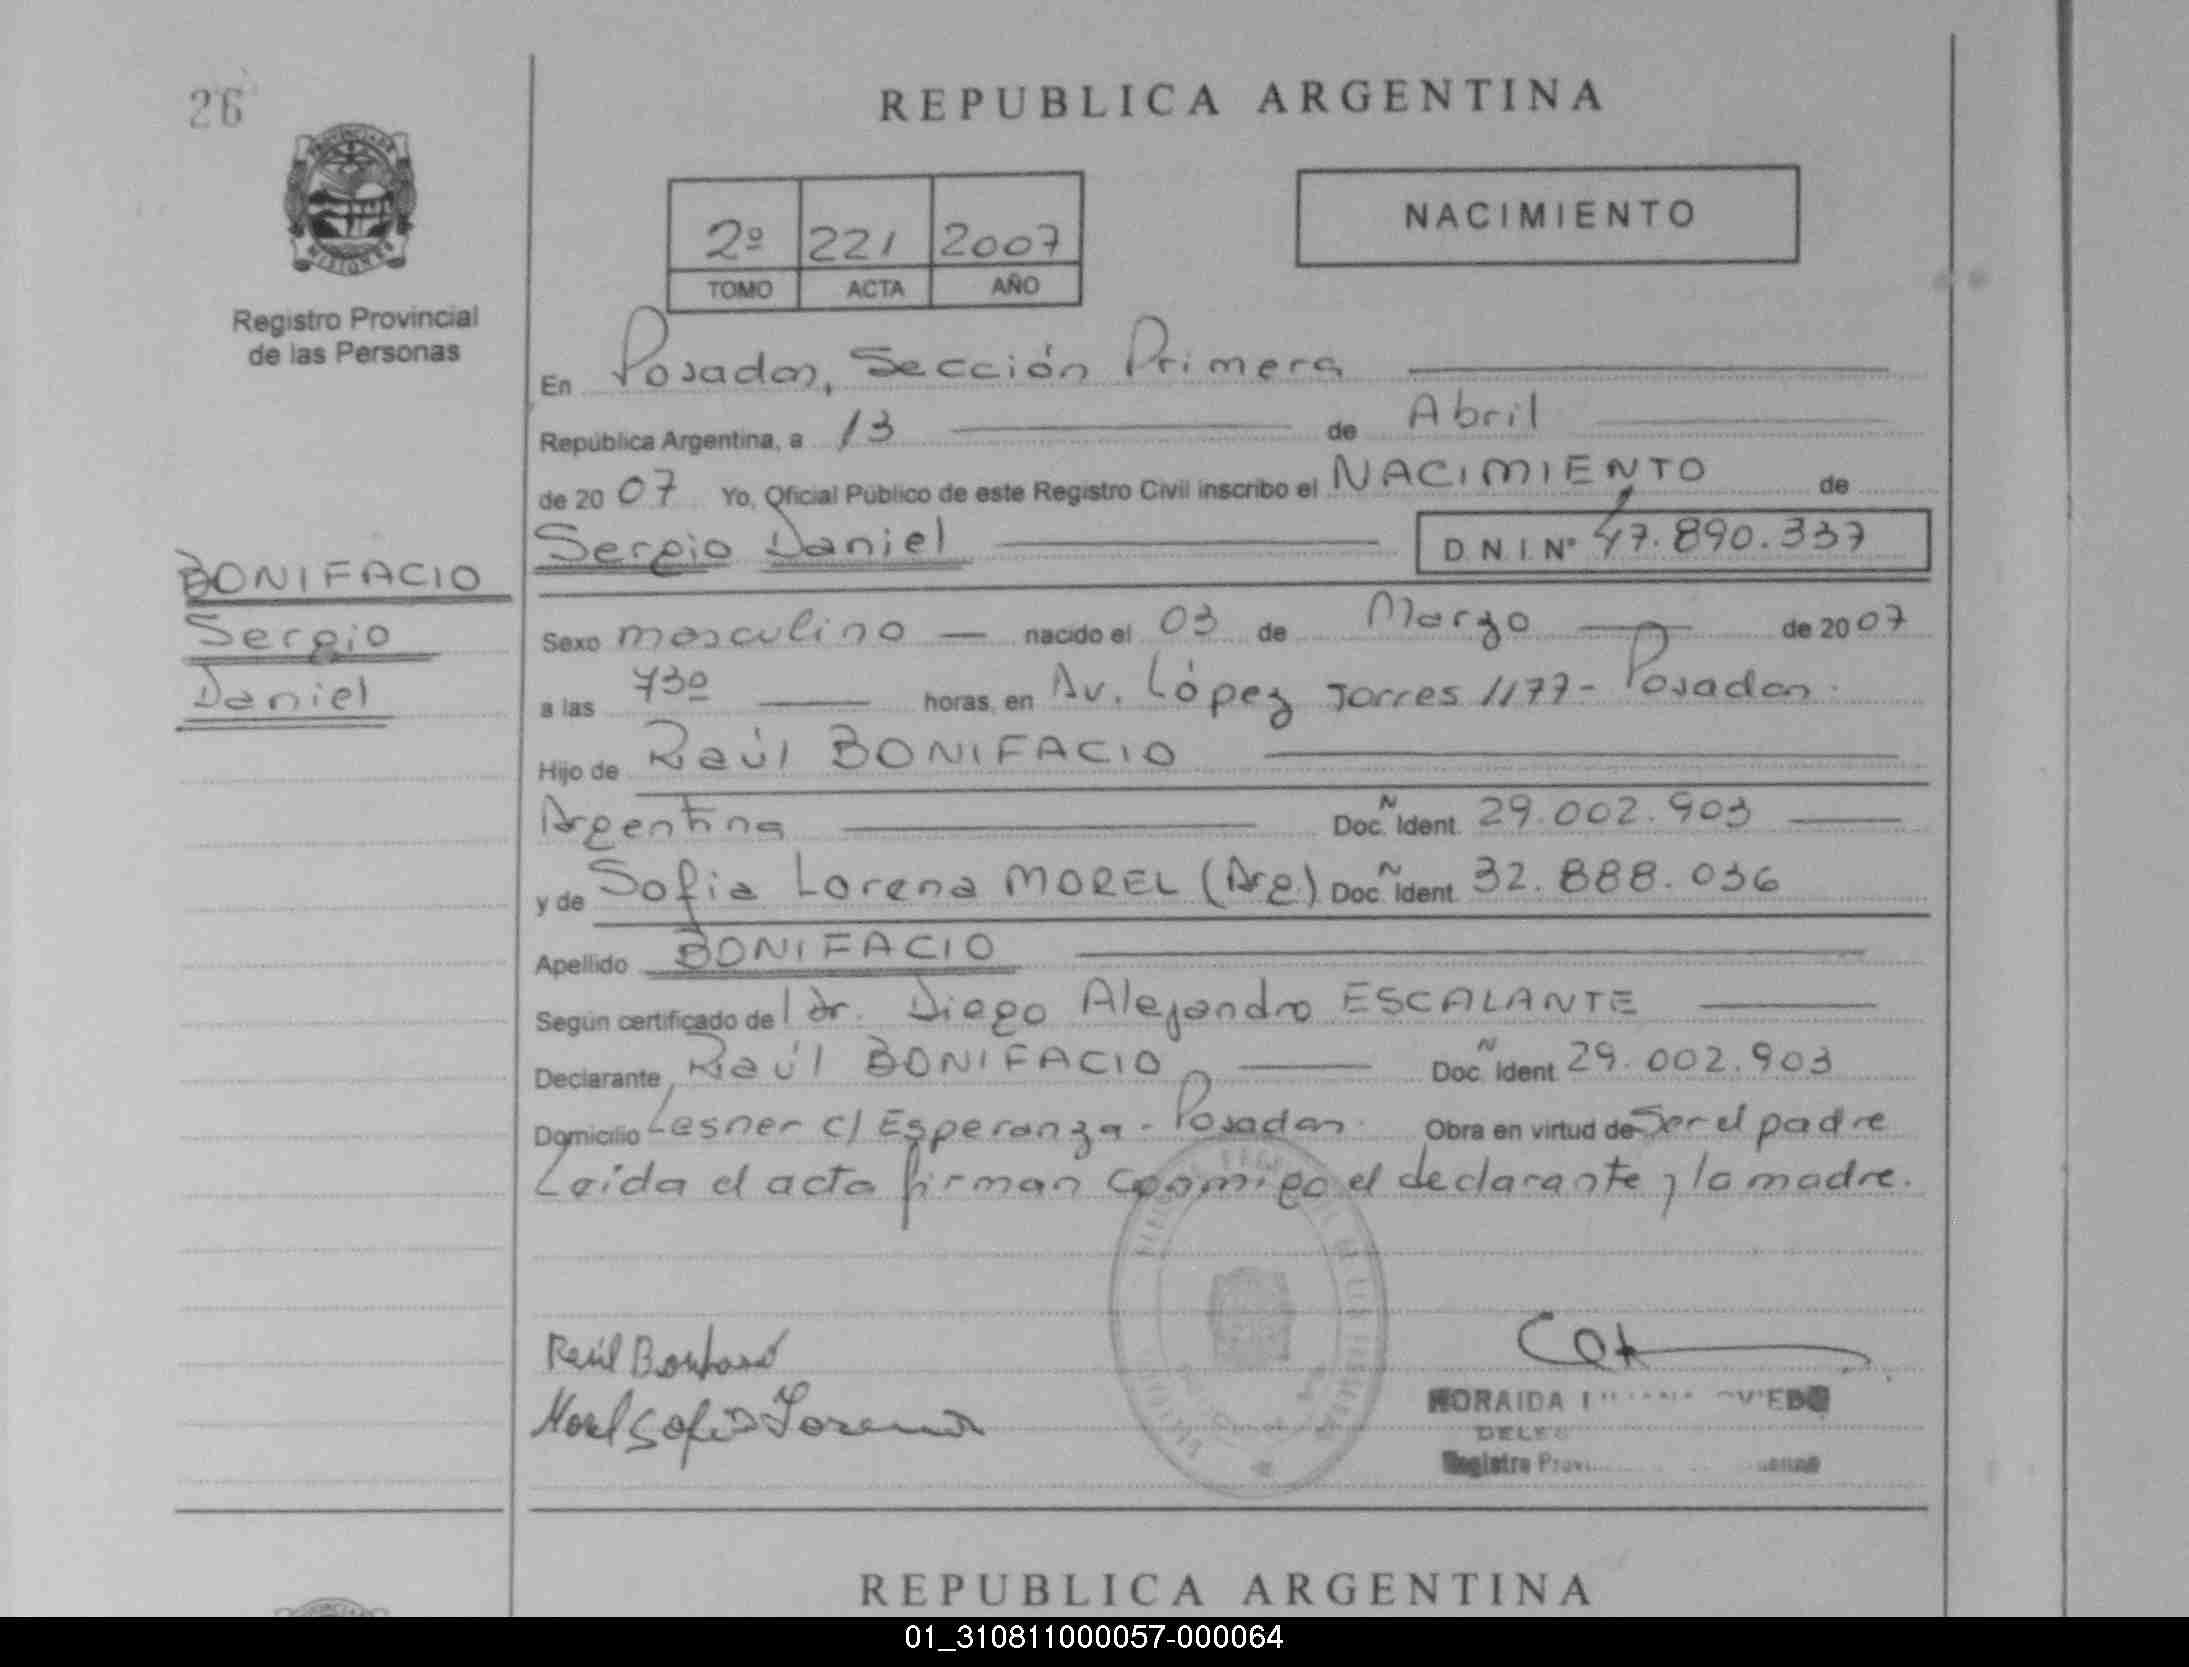 26
REPUBLICA ARGENTINA
PROVINCIA DE MISIONES
Registro Provincial
de las Personas
2º 221 2007
TOMO ACTA AÑO
NACIMIENTO
En Posadas, Sección Primera
República Argentina, a 13 de Abril
de 2007 Yo, Oficial Público de este Registro Civil inscribo el NACIMIENTO de
Sergio Daniel D.N.I. Nº 47.890.337
BONIFACIO
Sergio
Daniel
Sexo masculino nacido el 03 de Marzo de 2007
a las 730 horas, en Av. López Torres 1177 - Posadas.
Hijo de Raúl BONIFACIO
Argentina Doc. Ñ Ident. 29.002.903
y de Sofia Lorena MOREL (Arg.) Doc. Ñ Ident. 32.888.036
Apellido BONIFACIO
Según certificado del Dr. Diego Alejandro ESCALANTE
Declarante Raúl BONIFACIO Doc. Ñ Ident. 29.002.903
Domicilio Lesner c/ Esperanza - Posadas. Obra en virtud de Ser el padre
Leída el acta firman conmigo el declarante y la madre.
Raúl Bonifacio
Morel Sofia Lorena
REPUBLICA ARGENTINA
01_310811000057-000064